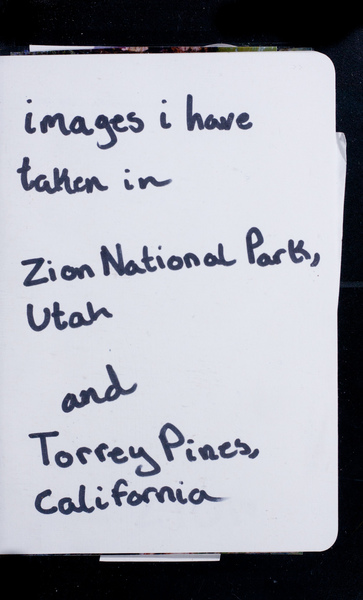 images i have
taken in
Zion National Park,
Utah
and
Torrey Pines,
California